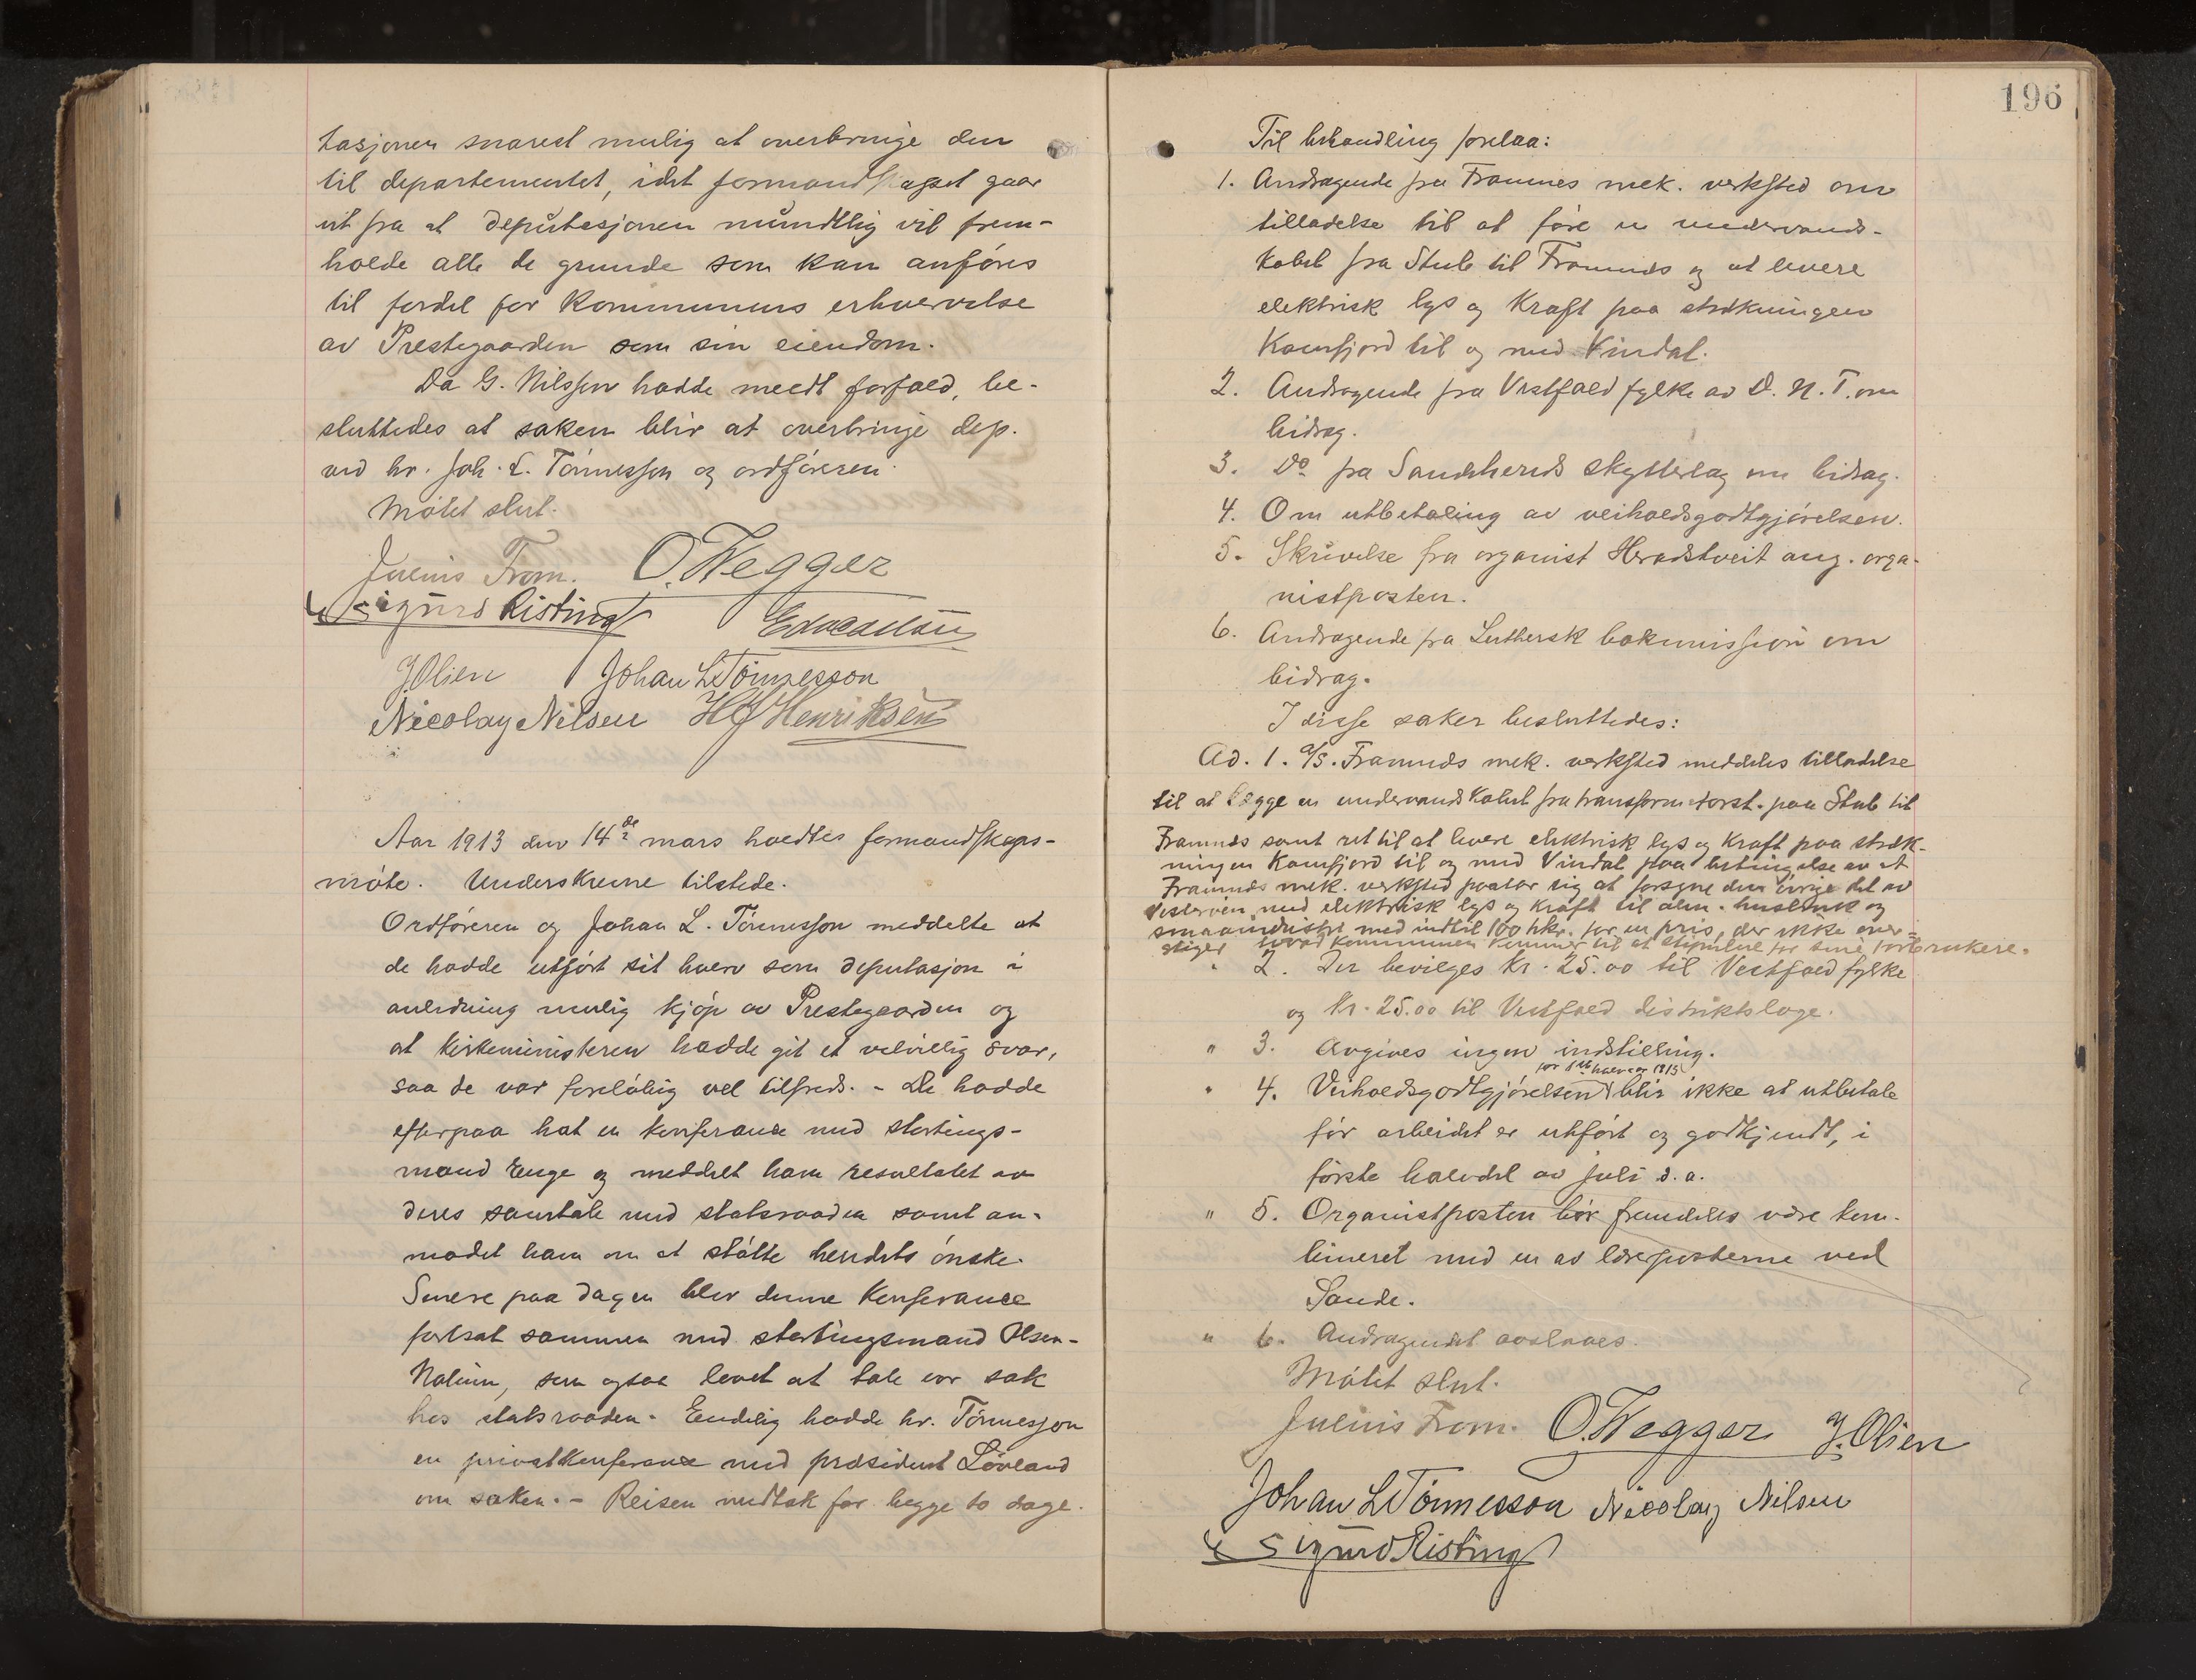 tasjonen snarest mulig at overbringe den
til departementet, idet formandskapet gaar
ut fra at deputasjonen mundtlig vil frem-
holde alle de grunde som kan anføres
til fordel for kommunens erhvervelse
av Prestegaarden som sin eiendom.
Da G. Nilssen hadde meldt forfald, be-
sluttedes at saken blir at overbringe dep.
ved hr. Joh. L. Tønnesson og ordføreren.
Møtet slut.
Julius From. O. Wegger
Sigurd Risting
J. Olsen Johan L. Tønnesson
Nicolay Nilsen H J Henriksen
Aar 1913 den 14de mars holdtes formandskaps-
møte. Underskrevne tilstede.
Ordføreren og Johan L. Tønnesson meddelte at
de hadde utført sit hverv som deputasjon i
anledning mulig kjøp av Prestegaarden og
at kirkeministeren hadde git et velvillig svar,
saa de var foreløbig vel tilfreds. - De hadde
efterpaa hat en konferanse med stortings-
mand Enge og meddelt ham resultatet av
deres samtale med statsraaden samt an-
modet ham om at støtte heredets ønske.
Senere paa dagen blev denne konferance
fortsat sammen med stortingsmand Olsen-
Nalum, som ogsaa lovet at tale vor sak
hos statsraaden. Endelig hadde hr. Tønnesson
en privat konferance med præsident Løvland
om saken. - Reisen medtok for begge to dage.
196
Til behandling forelaa:
1. Andragende fra Framnes mek. verksted om
tilladelse til at føre en undervands-
kabel fra Stub til Framnæs og at levere
elektrisk lys og kraft paa strækningen
Kamfjord til og med Vindal.
2. Andragende fra Vestfold fylke av D. N. T. om
bidrag.
3. Do fra Sandeherreds skytterlag om bidrag.
4. Om utbetaling av veiholdsgodtgjørelsen.
5. Skrivelse fra organist Heradstveit ang. orga-
nistposten.
6. Andragende fra Luthersk bokmission om
bidrag.
I disse saker besluttedes:
Ad. 1. A/S. Framnæs mek. verksted meddeles tilladelse
til at lægge en undervandskabel fra transformatorst. paa Stub til
Framnæs samt ret til at levere elektrisk lys og kraft paa stræk-
ningen Kamfjord til og med Vindal paa betingelse av at
Framnæs mek. verksted paatar sig at forsyne den øvrige del av
Vesterøen med elektrisk lys og kraft til alm. husbruk og
smaaindustri med indtil 100 hkr. for en pris, der ikke over-
stiger hvad kommunen kommer til at stipulere for sine forbrukere.
" 2. Der bevilges kr. 25.00 til Vestfold fylke
og kr. 25.00 til Vestfold distriktsloge.
" 3. Avgives ingen indstilling.
for 1ste halvaar 1913
" 4. Veiholdsgodtgjørelsen blir ikke at utbetale
før arbeidet er utført og godkjendt, i
første halvdel av juli d. a.
" 5. Organistposten bør fremdeles være kom-
bineret med en av lærerposterne ved
Sande.
" 6. Andragendet avslaaes.
Møtet slut.
Julius From. O. Wegger J. Olsen
Johan L. Tønnesson Nicolay Nilsen
Sigurd Risting